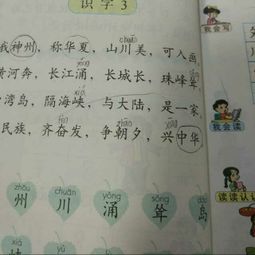 识字3
我神州，称华夏，山川美，可入画。
huà
黄河奔，长江涌，长城长，珠峰耸。
yǒng
sǒng
湾岛，隔海峡，与大陆，是一家。
xiá
民族，齐奋发，争朝夕，兴中华。
fèn
zhāo
zhōu chuān yǒng sǒng
州 川 涌 耸
我会写
我会读
读读认认